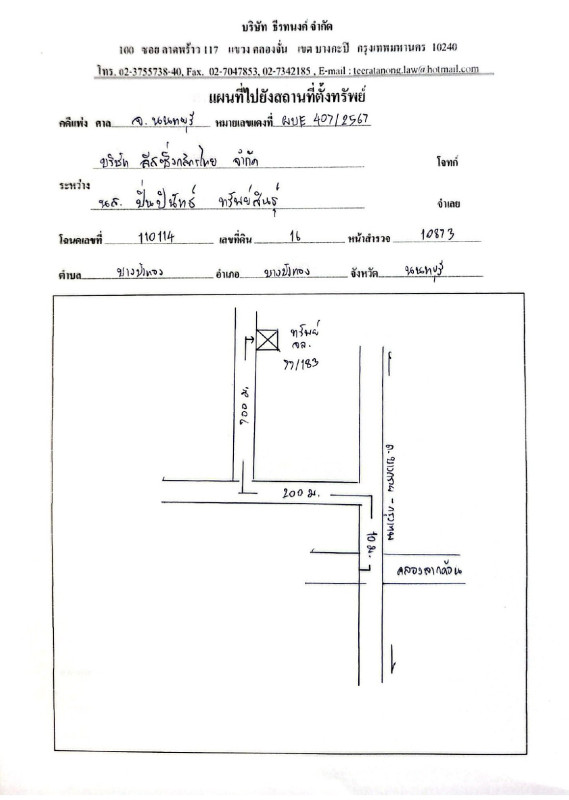 บริษัท ธีรทนงค์ จำกัด
100 ซอย ลาดพร้าว 117 แขวง คลองจั่น เขต บางกะปิ กรุงเทพมหานคร 10240
โทร. 02-3755738-40, Fax. 02-7047853, 02-7342185 , E-mail : teeratanong.law@hotmail.com
แผนที่ไปยังสถานที่ตั้งทรัพย์
คดีแพ่ง ศาล จ. นนทบุรี หมายเลขแดงที่ ผบE 407/2567
บริษัท ลีสซิ่งกสิกรไทย จำกัด โจทก์
ระหว่าง
นส. ปิ่นปินัทธ์ ทรัพย์สินธุ์ จำเลย
โฉนดเลขที่ 110114 เลขที่ดิน 16 หน้าสำรวจ 10873
ตำบล บางบัวทอง อำเภอ บางบัวทอง จังหวัด นนทบุรี
ทรัพย์
จล.
77/183
700 ม.
200 ม.
10 ม.
คลองลากค้อน